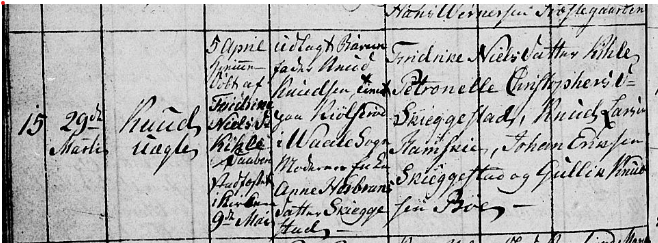 Hans Wernersen Præstegaarden
15
29de
Martii
Knud
uægte
5 April
hiemme
döbt af
Fredrikke
Niels D
Kihle
Daaben
stadfæstet
i Kirken
9de Mai
Udlagt Barne
fader Knud
Knudsen
paa
i Waale Sogn
Moderen
Anne Herbrans
Datter Skiegge
stad
Fredrike Niels Datter Kihle
Petronelle Christophers D
Skieggestad, Knud Larsen
Johan Eriksen
Skieggestad og Gullik Knud
sen Boe